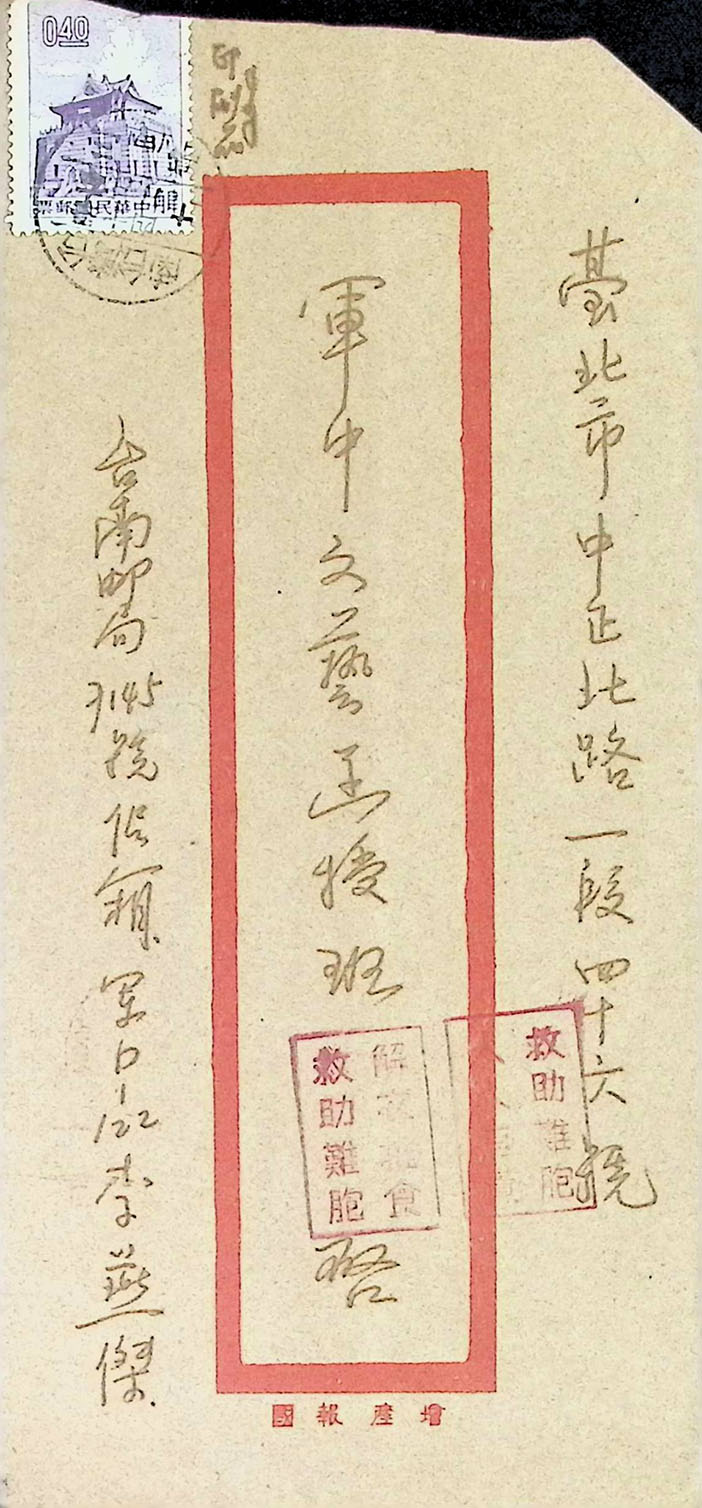 臺北市中正北路一段四十六號
軍中文藝函授班 啓
台南邮局7145號信箱 軍 李燕傑
0.40
中華民國郵票
救助難胞
解衣推食
救助難胞
增產報國